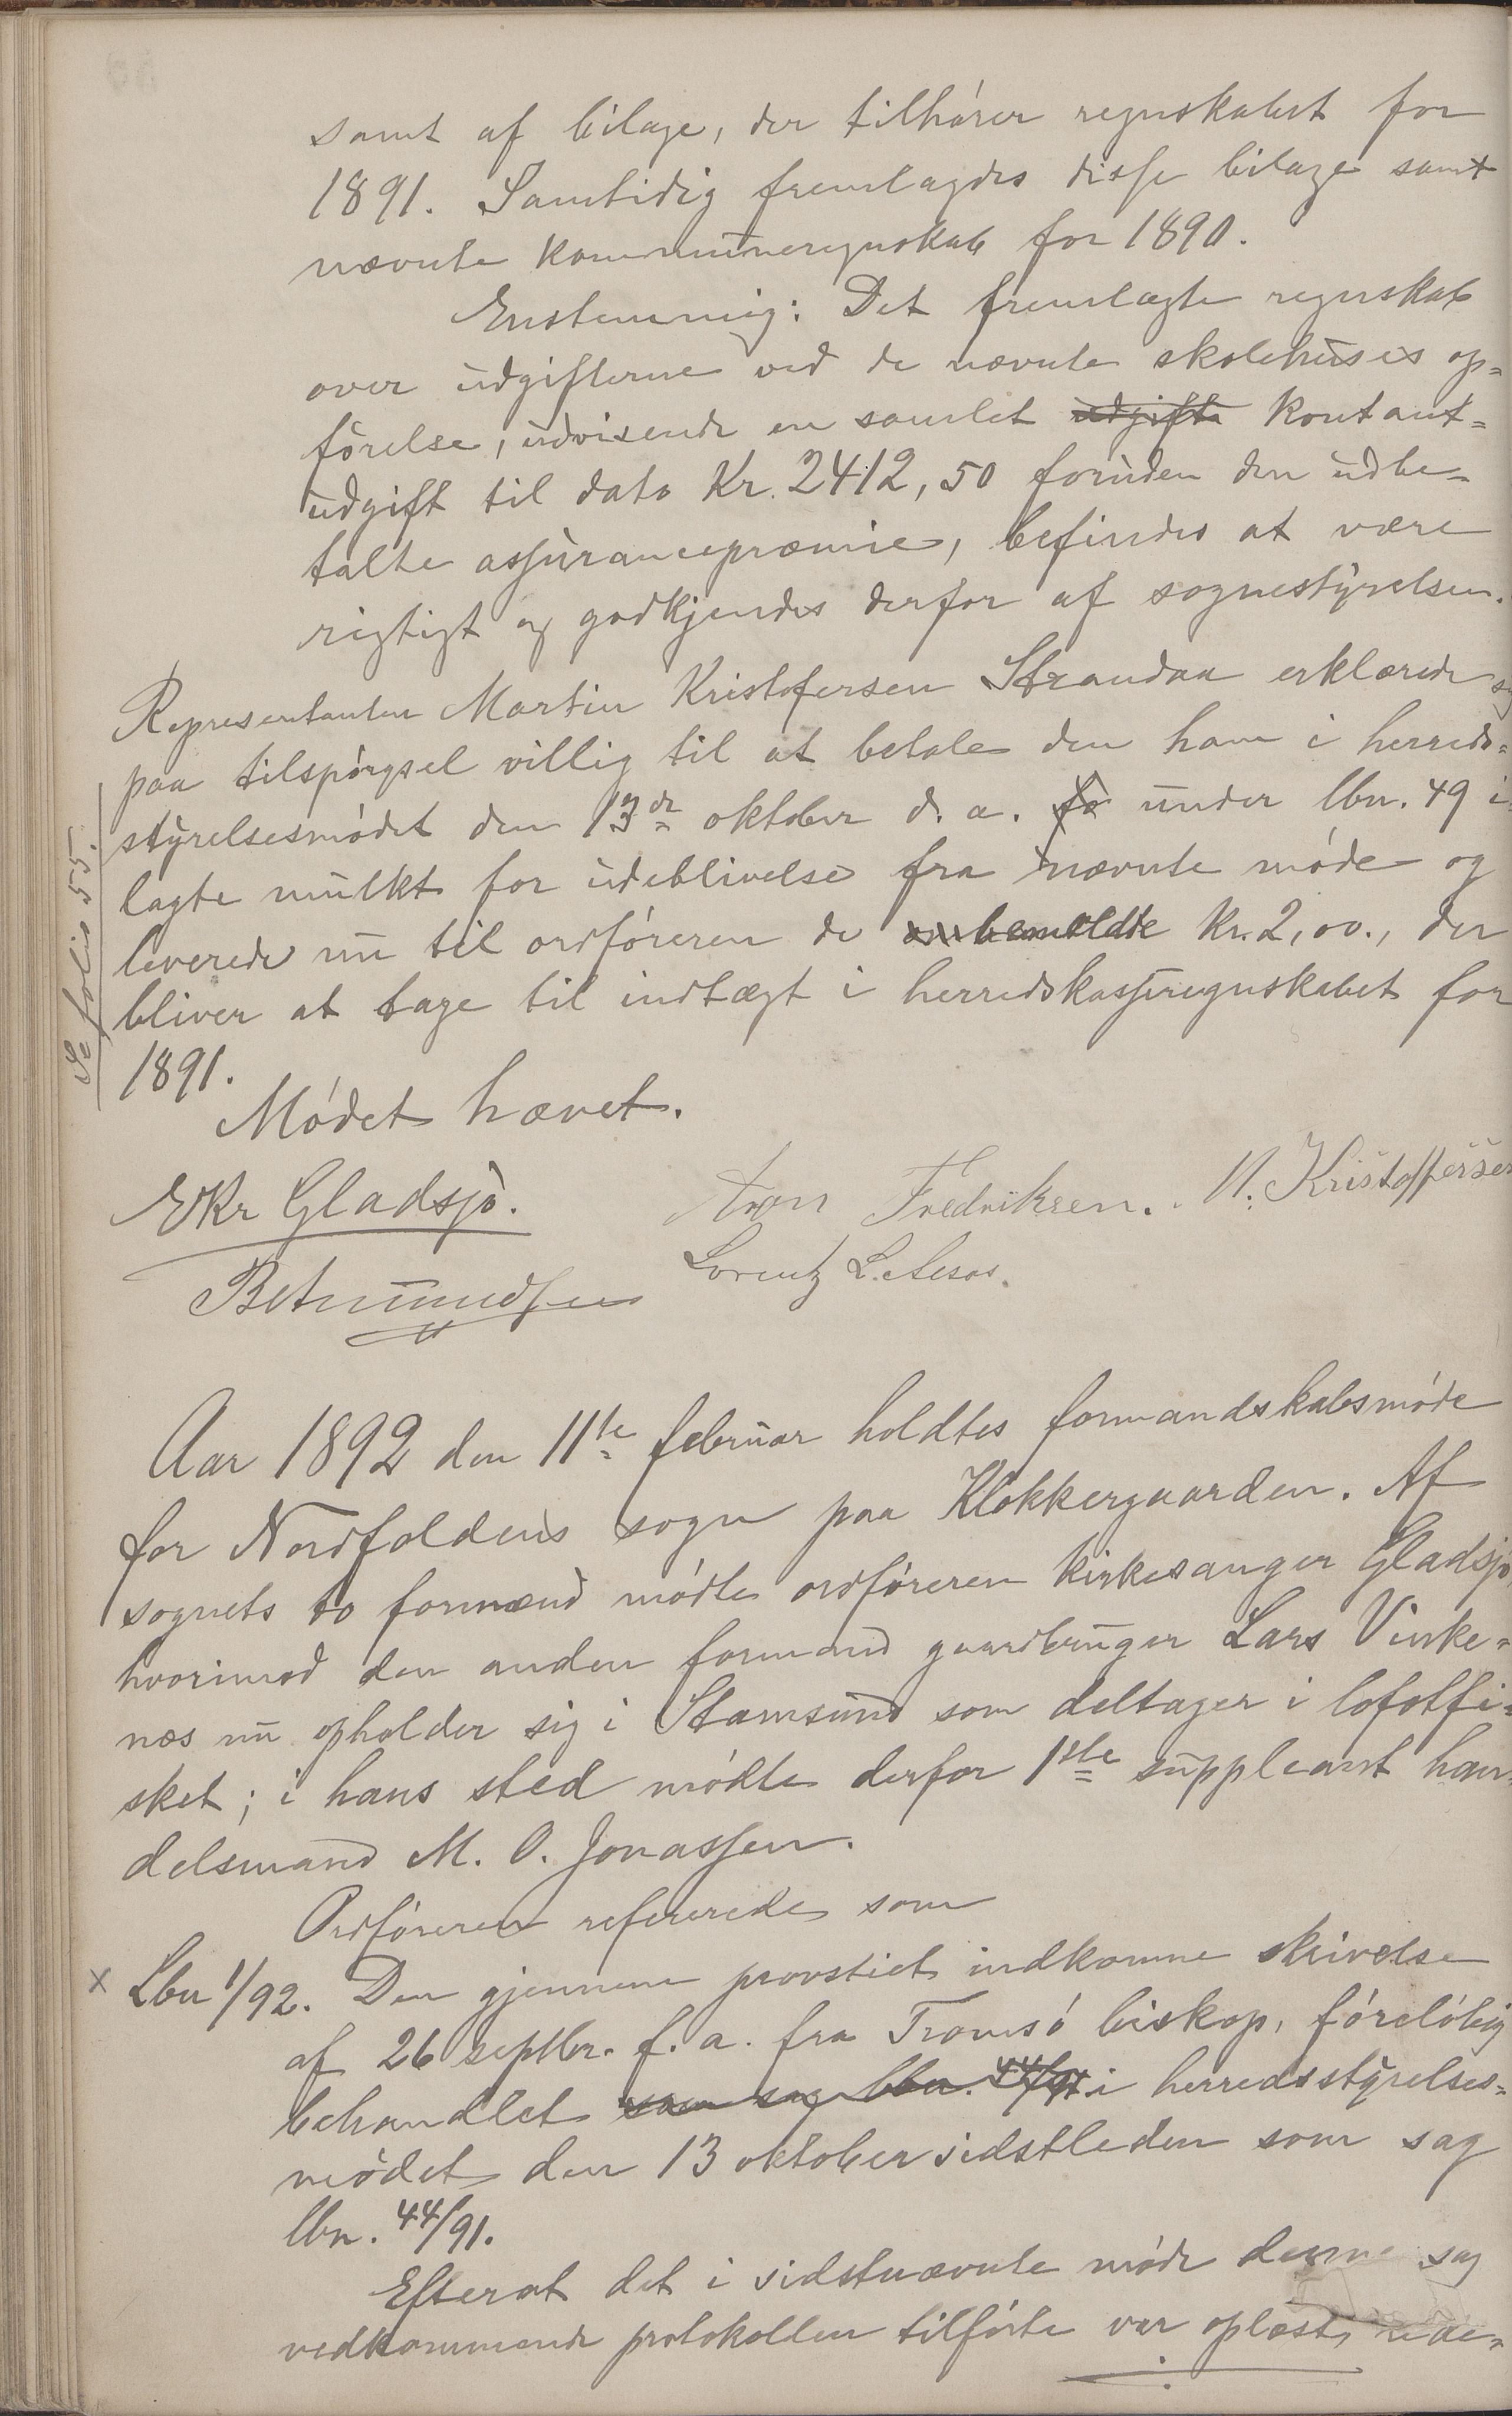 samt af bilage, der tilhører regnskabet for
1891. Samtidig fremlagdes disse bilage samt
nævnte kommuneregnskab for 1890.
Enstemmig: Det fremlagte regnskab
over udgifterne ved de nævnte skolehuses op=
førelse, udvisende en samlet udgift kontant=
udgift til dato Kr. 2412,50 foruden den udbe=
talte assurancepræmie, befindes at være
rigtigt og godkjendes derfor af sognestyrelsen.
Representanten Martin Kristofersen Strandaa erklærede sig
paa tilspørgsel villig til at betale den ham i herreds=
styrelsesmødet den 13de oktober d. a. under lbn. 49 i
lagte mulkt for udeblivelse fra nævnte møde og
leverede nu til ordføreren de ombemeldte Kr. 2,00., der
bliver at tage til indtægt i herredskasseregnskabet for
1891.
Se folio 55.
Mødet hævet.
EKr Gladsjø. Aron Fredriksen. M. Kristoffersen
Lorentz L. Aesos.
Aar 1892 den 11te februar holdtes formandskabsmøde
for Nordfoldens sogn paa Klokkergaarden. Af
sognets to formænd mødte ordføreren kirkesanger Gladsjø
hvorimod den anden formand gaardbruger Lars Vinke=
næs nu opholder sig i Stamsund som deltager i lofotfi=
sket; i hans sted mødte derfor 1ste suppleant han=
delsmand M. O. Jonassen.
Ordføreren refererede som
x Lbn 1/92. Den gjennem provstiet indkomne skrivelse
af 26 septbr. f. a. fra Tromsø biskop, føreløbig
behandlet som sag lbn. 44/91 i herredsstyrelses=
mødet den 13 oktober sidstleden som sag
lbn. 44/91.
Efterat det i sidstnævnte møde denne sag
vedkommende protokollen tilførte var oplæst,